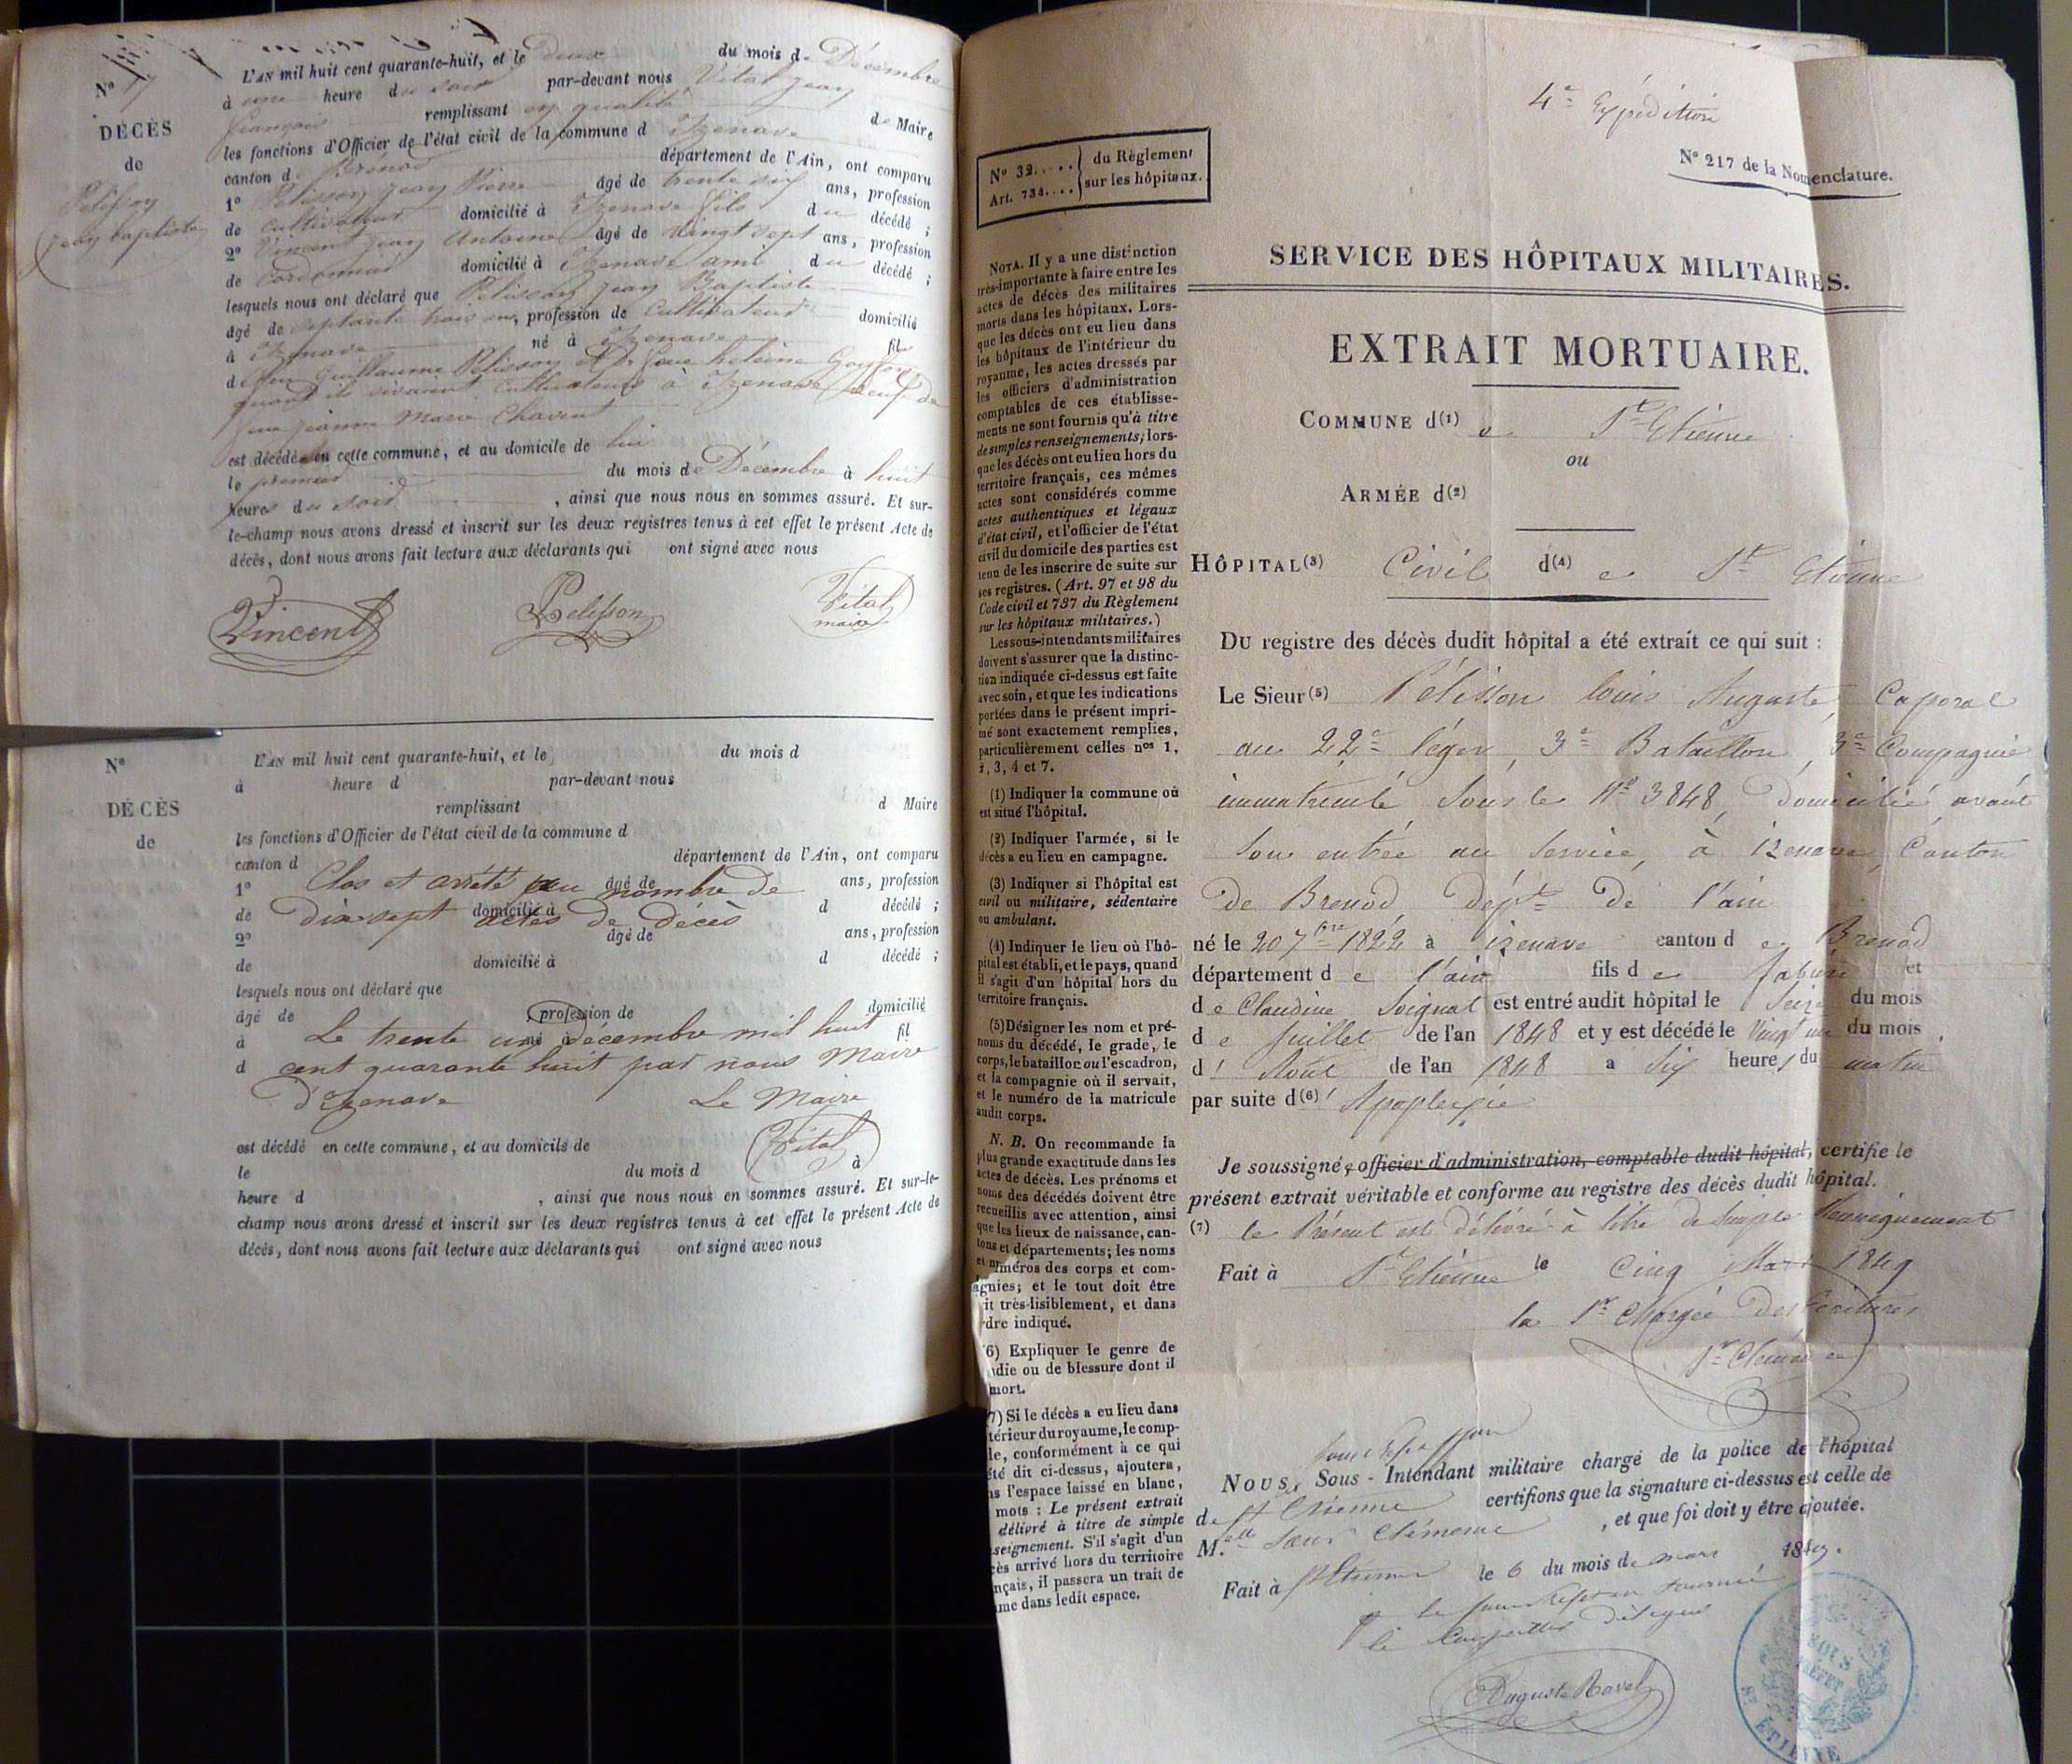 L'AN mil huit cent quarante-huit, et le deux du mois de Décembre
à une heure du soir par-devant nous Vital Jean
François remplissant en qualité de Maire
les fonctions d'Officier de l'état civil de la commune d Izenave
canton de Brénod département de l'Ain, ont comparu
1º Pelisson Jean Pierre âgé de trente six ans, profession
de cultivateur domicilié à Izenave fils du décédé ;
2º Vincent Jean Antoine âgé de vingt sept ans, profession
de Cordonnier domicilié à Izenave ami du décédé ;
lesquels nous ont déclaré que Pelisson Jean Baptiste
âgé de septante trois ans, profession de Cultivateur domicilié
à Izenave né à Izenave fils
de feu Guillaume Pelisson et de feue heleine
quand ils vivaient cultivateurs à Izenave veuf de
feue Jeanne Marie Chavent
est décédé en cette commune, et au domicile de lui
le premier du mois de Décembre à huit
heures du soir , ainsi que nous nous en sommes assuré. Et sur-
le-champ nous avons dressé et inscrit sur les deux registres tenus à cet effet le présent Acte de
décès, dont nous avons fait lecture aux déclarants qui ont signé avec nous
Vincent Pelisson Vital
maire
Nº 17
DÉCÈS
de
Pelisson
Jean baptiste
Nº
DÉCÈS
de
L'AN mil huit cent quarante-huit, et le du mois d
à heure d par-devant nous
remplissant d Maire
les fonctions d'Officier de l'état civil de la commune d
canton d département de l'Ain, ont comparu
1º âgé de ans, profession
Clos et arrêté au nombre de
de domicilié à d décédé ;
dix sept actes de décès
2º âgé de ans, profession
de domicilié à d décédé ;
lesquels nous ont déclaré que
âgé de , profession de domicilié
à né à fil
Le trente un décembre mil huit
d cent quarante huit par nous Maire
d'Izenave Le Maire
Vital
est décédé en cette commune, et au domicile de
le du mois d à
heure d , ainsi que nous nous en sommes assuré. Et sur-le-
champ nous avons dressé et inscrit sur les deux registres tenus à cet effet le présent Acte de
décès, dont nous avons fait lecture aux déclarants qui ont signé avec nous
4e Expédition
Nº 217 de la Nomenclature.
Nº 32..... du Règlement
Art. 734.... sur les hôpitaux.
NOTA. Il y a une distinction
très-importante à faire entre les
actes de décès des militaires
morts dans les hôpitaux. Lors-
que les décès ont eu lieu dans
les hôpitaux de l'intérieur du
royaume, les actes dressés par
les officiers d'administration
comptables de ces établisse-
ments ne sont fournis qu'à titre
de simples renseignements; lors-
que les décès ont eu lieu hors du
territoire français, ces mêmes
actes sont considérés comme
actes authentiques et légaux
d'état civil, et l'officier de l'état
civil du domicile des parties est
tenu de les inscrire de suite sur
ses registres. (Art. 97 et 98 du
Code civil et 737 du Règlement
sur les hôpitaux militaires.)
Les sous-intendants militaires
doivent s'assurer que la distinc-
tion indiquée ci-dessus est faite
avec soin, et que les indications
portées dans le présent impri-
mé sont exactement remplies,
particulièrement celles nos 1,
2, 3, 4 et 7.
(1) Indiquer la commune où
est situé l'hôpital.
(2) Indiquer l'armée, si le
décès a eu lieu en campagne.
(3) Indiquer si l'hôpital est
civil ou militaire, sédentaire
ou ambulant.
(4) Indiquer le lieu où l'hô-
pital est établi, et le pays, quand
il s'agit d'un hôpital hors du
territoire français.
(5) Désigner les nom et pré-
noms du décédé, le grade, le
corps, le bataillon ou l'escadron,
et la compagnie où il servait,
et le numéro de la matricule
audit corps.
N. B. On recommande la
plus grande exactitude dans les
actes de décès. Les prénoms et
noms des décédés doivent être
recueillis avec attention, ainsi
que les lieux de naissance, can-
tons et départements; les noms
et numéros des corps et com-
agnies; et le tout doit être
it très-lisiblement, et dans
rdre indiqué.
6) Expliquer le genre de
die ou de blessure dont il
mort.
7) Si le décès a eu lieu dans
térieur du royaume, le comp-
le, conformément à ce qui
été dit ci-dessus, ajoutera,
ns l'espace laissé en blanc,
mots : Le présent extrait
délivré à titre de simple
seignement. S'il s'agit d'un
cès arrivé hors du territoire
nçais, il passera un trait de
me dans ledit espace.
SERVICE DES HÔPITAUX MILITAIRES.
EXTRAIT MORTUAIRE.
COMMUNE d(1) e St Etienne
ou
ARMÉE d(2)
HÔPITAL(3) Civil d(4) e St Etienne
DU registre des décès dudit hôpital a été extrait ce qui suit :
Le Sieur(5) Pélisson louis Auguste, Caporal
au 22e léger, 3e Bataillon, 3e Compagnie
immatriculé sous le Nº 3848, Domicilié avant
son entrée au service, à izenave, Canton
de Brenod Dépt de l'ain
né le 20 7bre 1822 à izenave canton d e Brenod
département d e l'ain fils d e fabien et
d e Claudine Soignat est entré audit hôpital le Seize du mois
d e Juillet de l'an 1848 et y est décédé le Vingt un du mois
d' Aout de l'an 1848 a Six heures du matin
par suite d(6)' Apoplexie
Je soussigné, officier d'administration, comptable dudit hôpital, certifie le
présent extrait véritable et conforme au registre des décès dudit hôpital.
(7) le Présent est délivré à titre de Simple Renseignement
Fait à St Etienne le Cinq Mars 1849
la Sr Chargée Des Ecritures
Sr Clémence
Sous Préfet
NOUS, Sous-Intendant militaire chargé de la police de l'hôpital
de St Etienne certifions que la signature ci-dessus est celle de
M.elle Sœur Clémence , et que foi doit y être ajoutée.
Fait à St Etienne le 6 du mois de mars 1849.
P le Sous Préfet en tournée
le Conseiller délégué
Auguste Ravel
SOUS
PRÉFET
ST ETIENNE